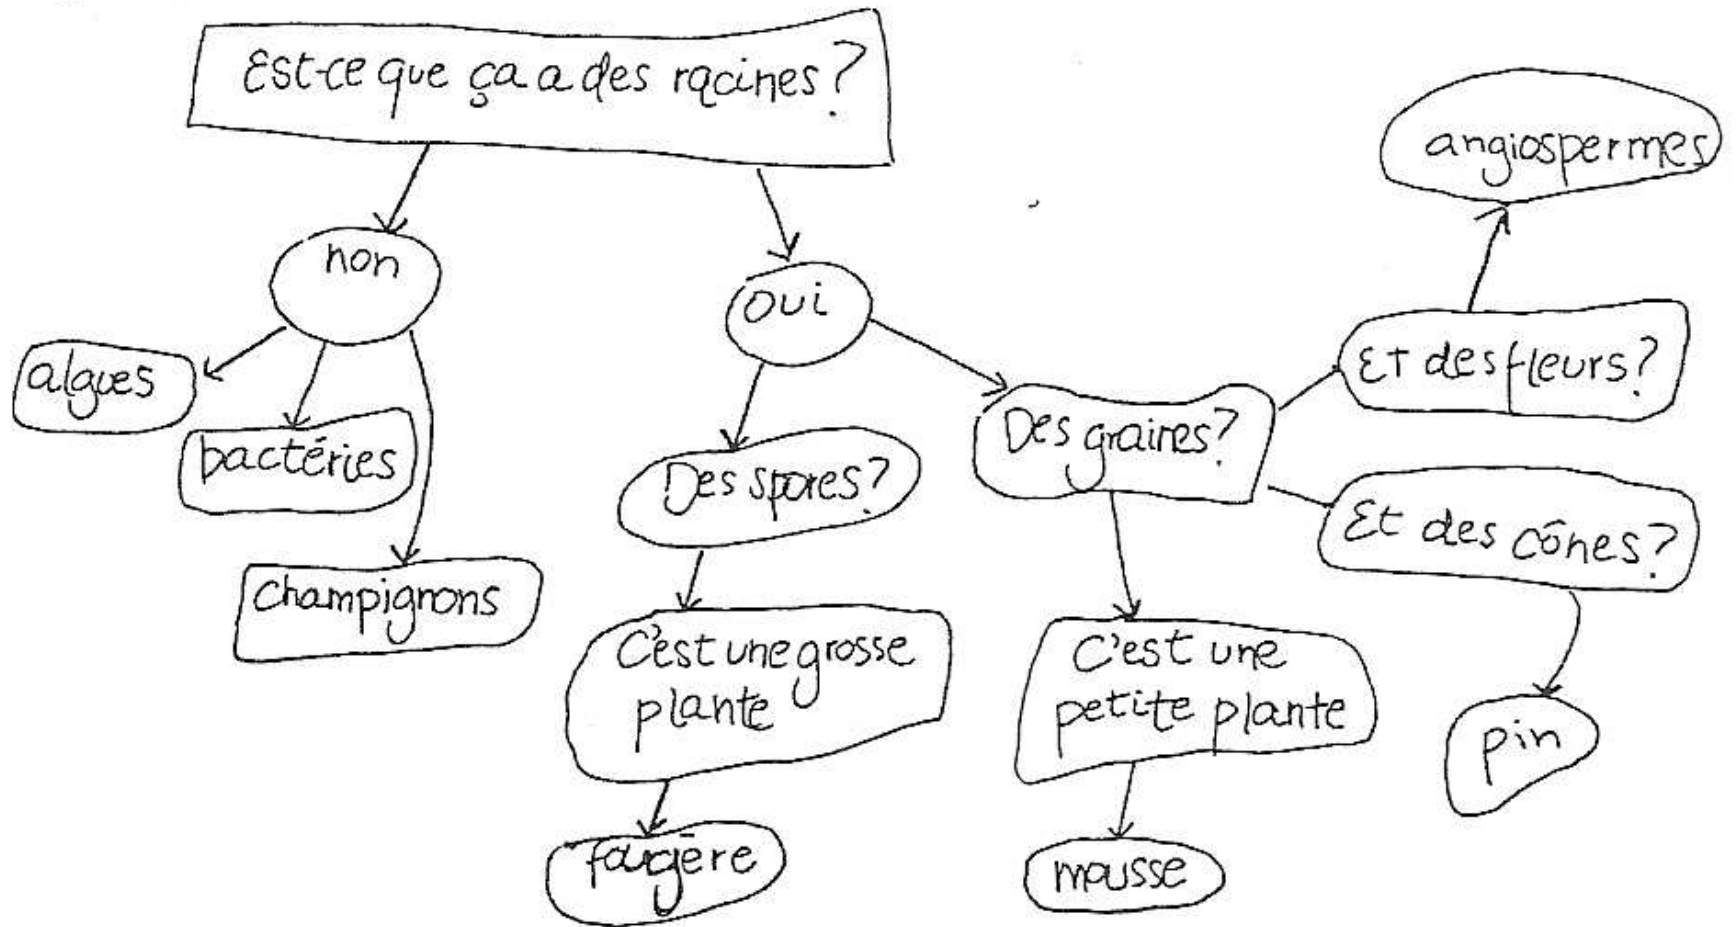 Est-ce que ça a des racines?
non
oui
algues
bactéries
champignons
Des spores?
C'est une grosse
plante
fougère
Des graines?
C'est une
petite plante
mousse
Et des fleurs?
angiospermes
Et des cônes?
pin